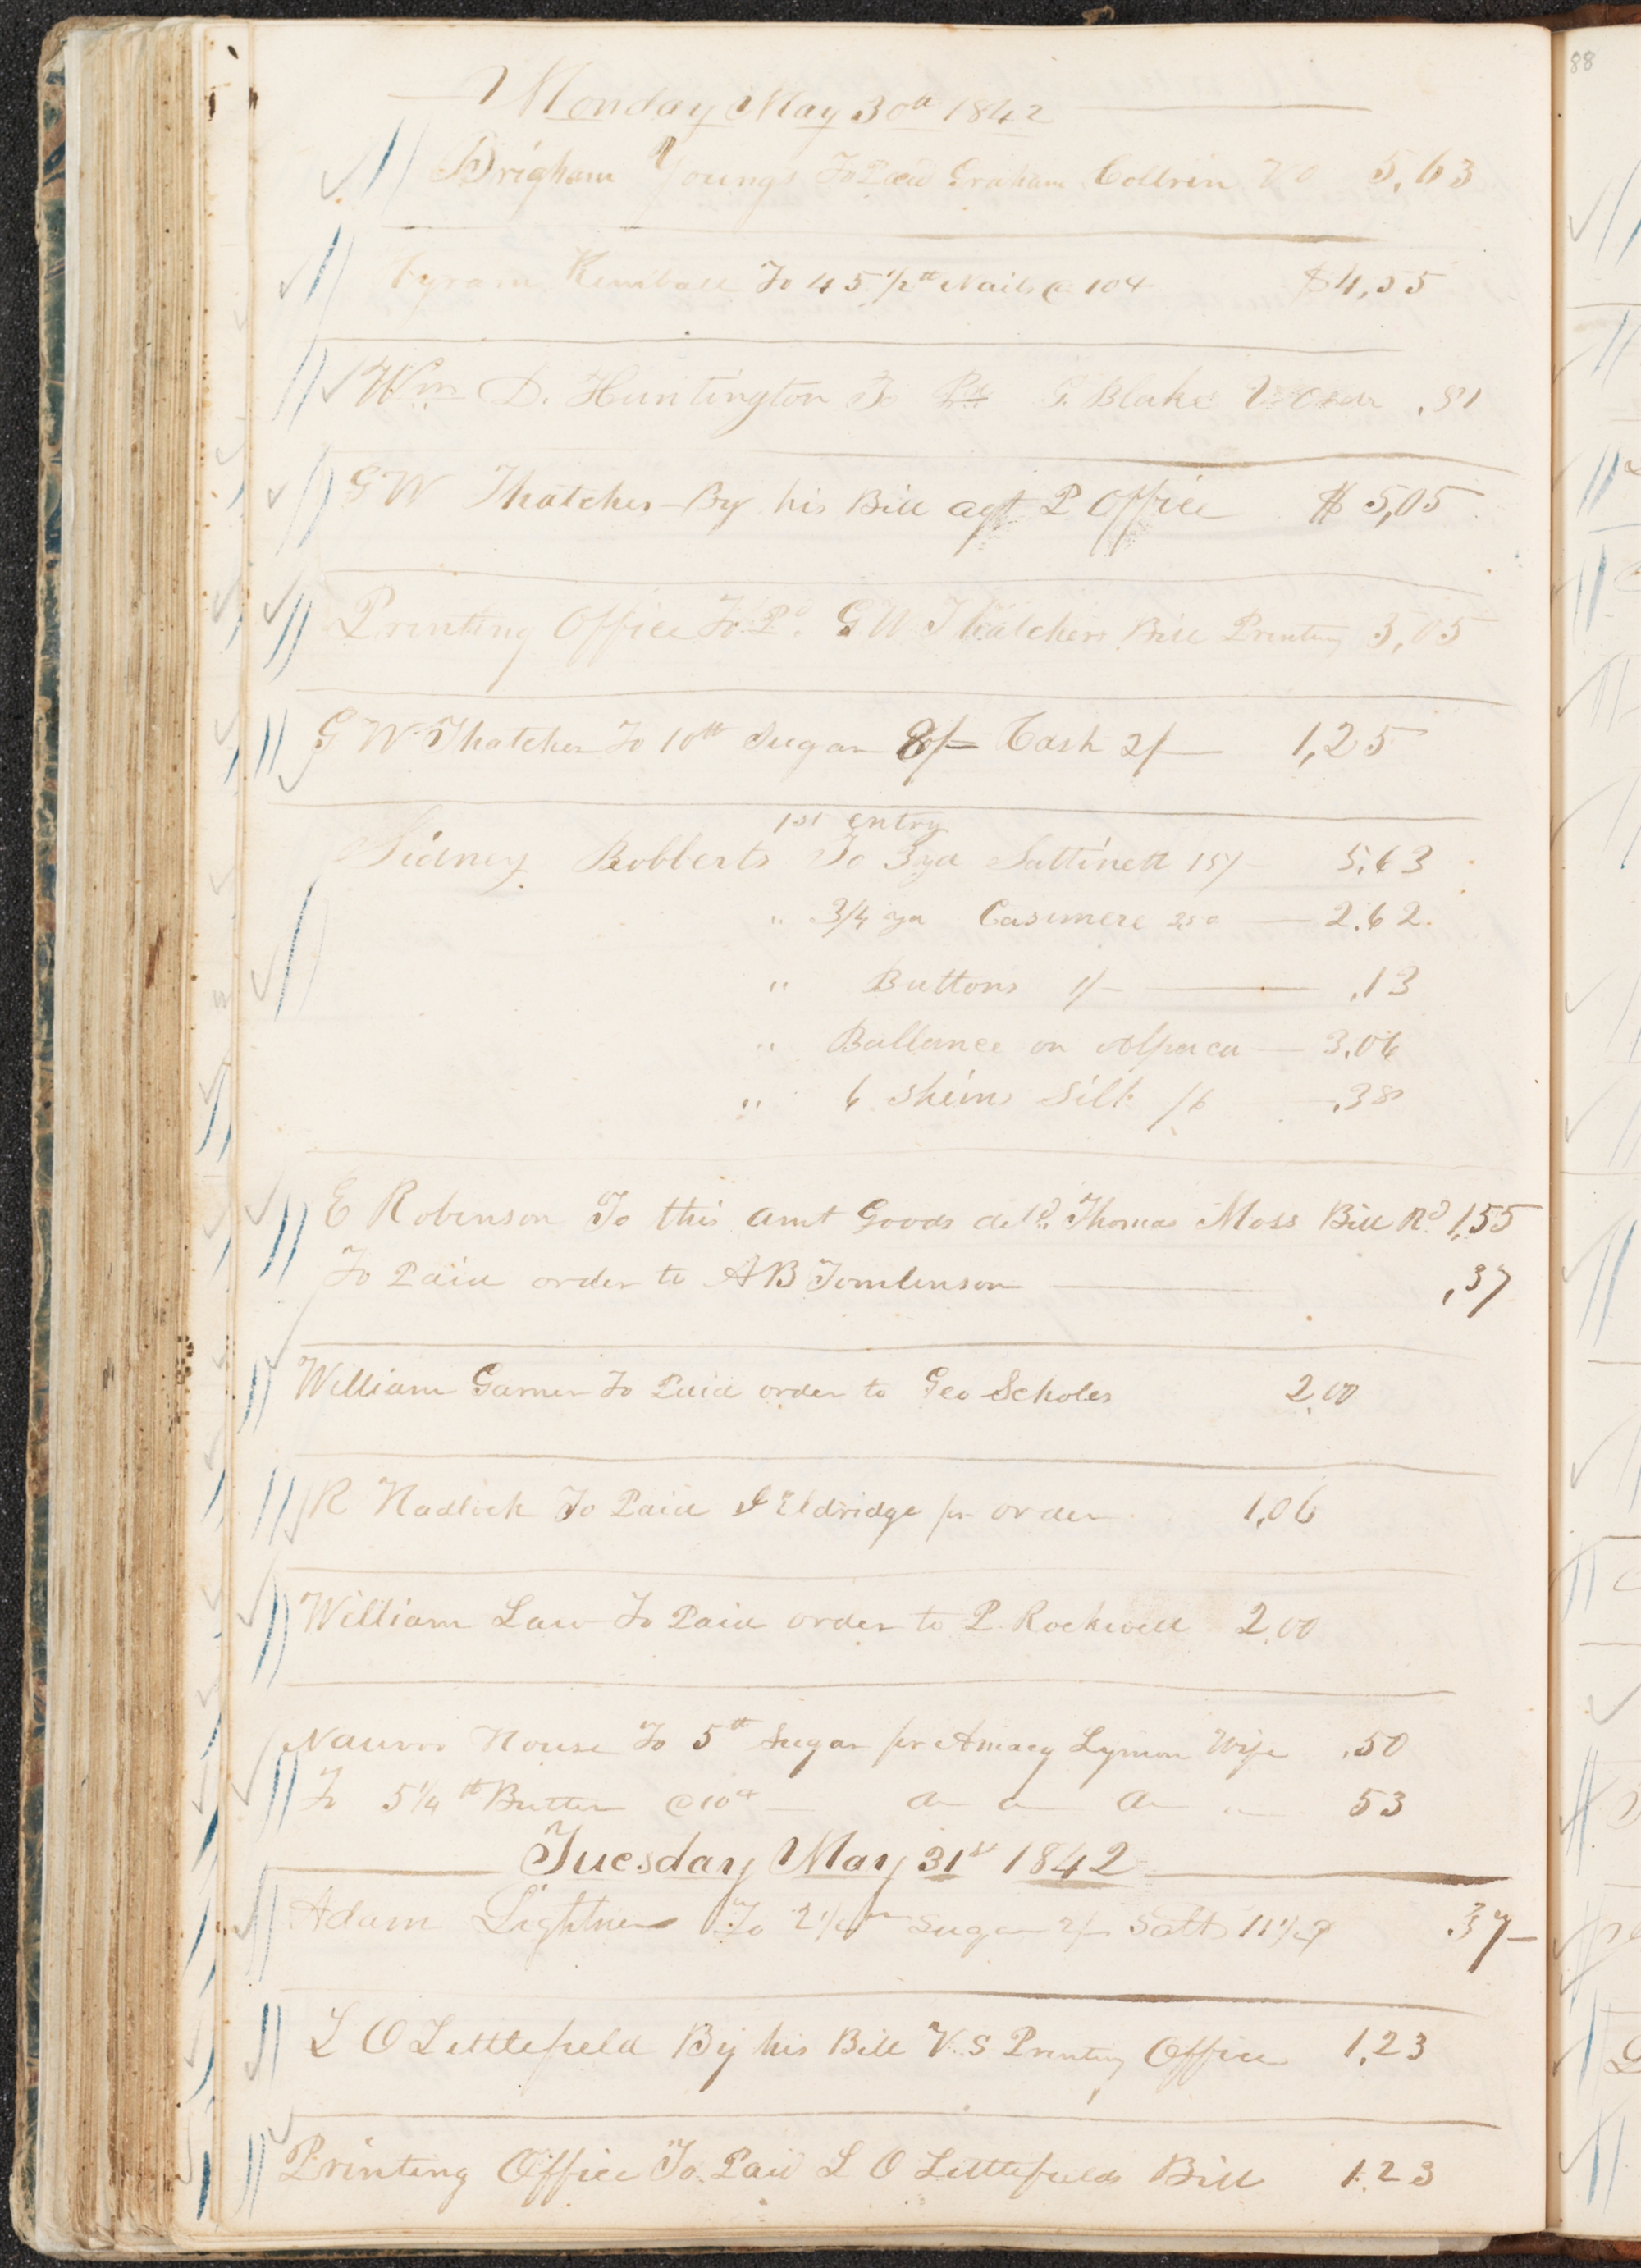 Monday May 30th 1842
Brigham Youngs To Paid Graham Coltrin VO 5,63
Hyram Kimball To 45 1/2 lb Nails @ 10¢ $4,55
Wm D. Huntington To Pd G. Blake ,81
G W Thatcher By his Bill agt P Office $ 5,05
Printing Office To Pd. G W Thatchers Bill Printing 5,05
G W Thatcher To 10 lb Sugar 8/- Cash 2/- 1,25
1st Entry
Sidney Robberts To 3 yd Sattinett 15/- 5.63
" 3/4 yd Casimere 350 — 2.62.
" Buttons 1/- — .13
" Ballance on Alpaca — 3.06
" 6 Skeins Silk /6 .38
E Robinson To this amt Goods deld. Thomas Moss Bill Rd. 1,55
To Paid order to A B Tomlinson — ,37
William Garner To Paid order to Geo Scholes 2,00
R Hadlock To Paid I Eldridge pr order 1,06
William Law To Paid order to P. Rockwell 2,00
Nauvoo House To 5 lb Sugar pr Amacy Lymon Wife .50
To 5 1/4 lb Butter @ 10¢ — 53
Tuesday May 31st 1842
Adam Lightner To 2 1/2 lb Sugar 2/- Salts .37-
L O Littlefield By his Bill V.S Printing Office 1,23
Printing Office To Paid L O Littlefields Bill 1.23
88